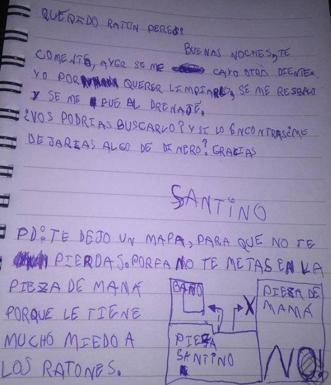 QUERIDO RATON PEREZ:
BUENAS NOCHES, TE
COMENTO, AYER SE ME CAYO OTRO DIENTE,
YO POR QUERER LIMPIARLO, SE ME RESBALO
Y SE ME FUE AL DRENAJE.
¿VOS PODRIAS BUSCARLO? Y SI LO ENCONTRAS ¿ME
DEJARIAS ALGO DE DINERO? GRACIAS
SANTINO
PD: TE DEJO UN MAPA, PARA QUE NO TE
PIERDAS. PORFA NO TE METAS EN LA
PIEZA DE MAMÁ
PORQUE LE TIENE
MUCHO MIEDO A
LOS RATONES.
BAÑO
X
PIEZA DE
MAMÁ
PIEZA
SANTINO
NO!